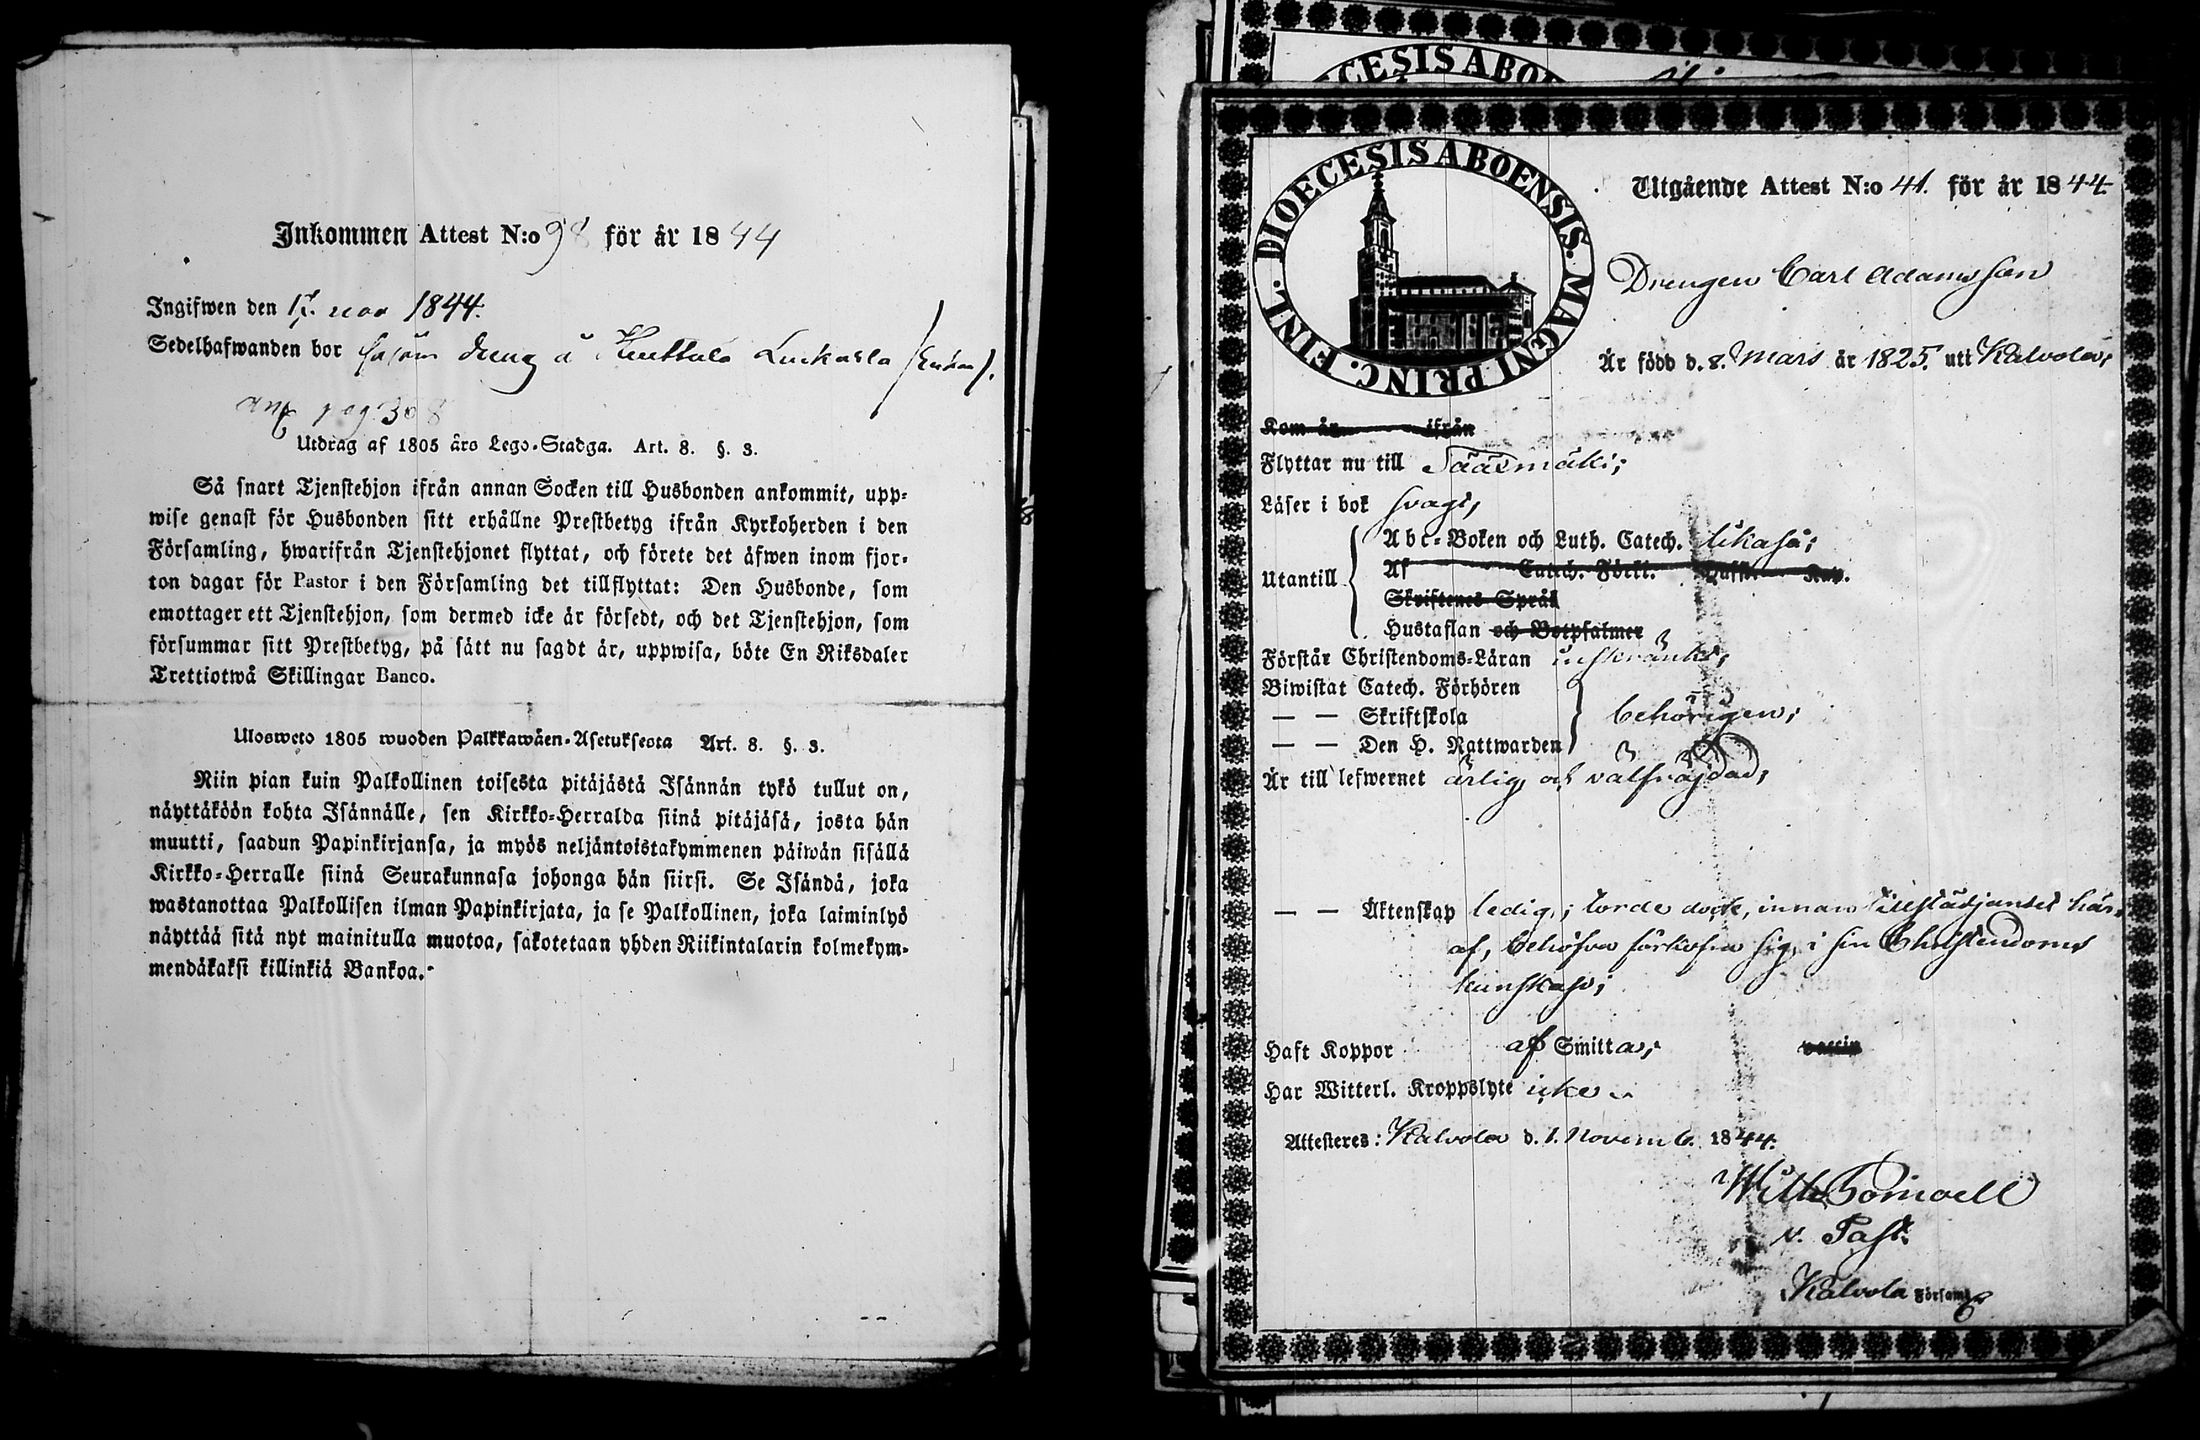 Inkommen Attest N:o 98 för år 1844
Ingifwen den 17. nov 1844.
Sedelhafwanden bor såsom dräng å Huttula
ant pag 308
Utdrag af 1805 års Lego-Stadga. Art. 8. §. 3.
Så snart Tjenstehjon ifrån annan Socken till Husbonden ankommit, upp-
wise genast för Husbonden sitt erhållne Prestbetyg ifrån Kyrkoherden i den
Församling, hwarifrån Tjenstehjonet flyttat, och förete det äfwen inom fjor-
ton dagar för Pastor i den Församling det tillflyttat: Den Husbonde, som
emottager ett Tjenstehjon, som dermed icke är försedt, och det Tjenstehjon, som
försummar sitt Prestbetyg, på sätt nu sagdt är, uppwisa, böte En Riksdaler
Trettiotwå Skillingar Banco.
Ulosweto 1805 wuoden Palkkawäen-Asetuksesta Art. 8. §. 3.
Niin pian kuin Palkollinen toisesta pitäjästä Isännän tykö tullut on,
näyttäköön kohta Isännälle, sen Kirkko-Herralda siinä pitäjäsä, josta hän
muutti, saadun Papinkirjansa, ja myös neljäntoistakymmenen päiwän sisällä
Kirkko-Herralle siinä Seurakunnasa johonga hän siirsi. Se Isändä, joka
wastanottaa Palkollisen ilman Papinkirjata, ja se Palkollinen, joka laiminlyö
näyttää sitä nyt mainitulla muotoa, sakotetaan yhden Riikintalarin kolmekym-
mendäkaksi killinkiä Bankoa.
CESIS ABO
DIOECESIS ABOENSIS. MAGNI PRINC. FINL.
Utgående Attest N:o 41. för år 1844
Drengen Carl Adamsson
Är född d. 8. Mars år 1825. uti Kalvola;
Kom år ifrån
Flyttar nu till Sääsmäki;
Läser i bok svagt,
Utantill
Abc-Boken och Luth. Catech. likaså;
Af Catech. Förkl.
Skriftenes Språk
Hustaflan och Botpsalmer
Förstår Christendoms-Läran inskränkt,
Biwistat Catech. Förhören
— — Skriftskola behörigen;
— — Den H. Nattwarden
Är till lefwernet ärlig och välfräjdad;
— — Äktenskap ledig; torde dock, innan tillstädjandet här-
af, behöfva förkofra sig i sin Christendoms
kunskap;
Haft Koppor af Smitta; vaccin
Har Witterl. Kroppslyte icke
Attesteres: Kalvola d. 1. Novemb. 1844.
Wilh. Fornoell
v. Past.
Kalvola Församl